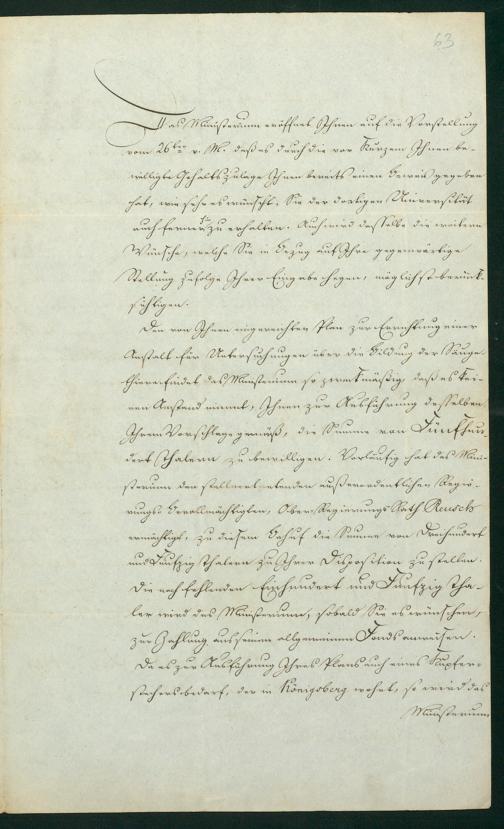 63
Das Ministerium eröffnet Ihnen auf die Vorstellung
vom 26ten v. M. daß es durch die vor Kurzem Ihnen be-
willigte Gehaltszulage Ihnen bereits einen Beweis gegeben
hat, wie sehr es wünscht, Sie der dortigen Universität
auch ferner zu erhalten. Auch wird dasselbe die weitern
Wünsche, welche Sie in Bezug auf Ihre gegenwärtige
Stellung zufolge Ihrer Eingabe hegen, möglichst berück-
sichtigen.
Den von Ihnen eingereichten Plan zur Errichtung einer
Anstalt für Untersuchungen über die Bildung der Säuge-
thiere findet das Ministerium so zweckmäßig, daß es kei-
nen Anstand nimmt, Ihnen zur Ausführung desselben
Ihrem Vorschlage gemäß, die Summe von Fünfhun-
dert Thalern zu bewilligen. Vorläufig hat das Mini-
sterium den stellvertretenden außerordentlichen Regie-
rungs Bevollmächtigten, Ober-Regierungs Rath Reusch
ermächtigt, zu diesem Behuf die Summe von Dreihundert
und Funfzig Thalern zu Ihrer Disposition zu stellen.
Die noch fehlenden Einhundert und Funfzig Tha-
ler wird das Ministerium, sobald Sie es wünschen,
zur Zahlung aus seinem allgemeinen Fonds anweisen.
Da es zur Ausführung Ihres Plans auch eines Kupfer-
stechers bedarf, der in Königsberg wohnt, so wird das
Ministerium